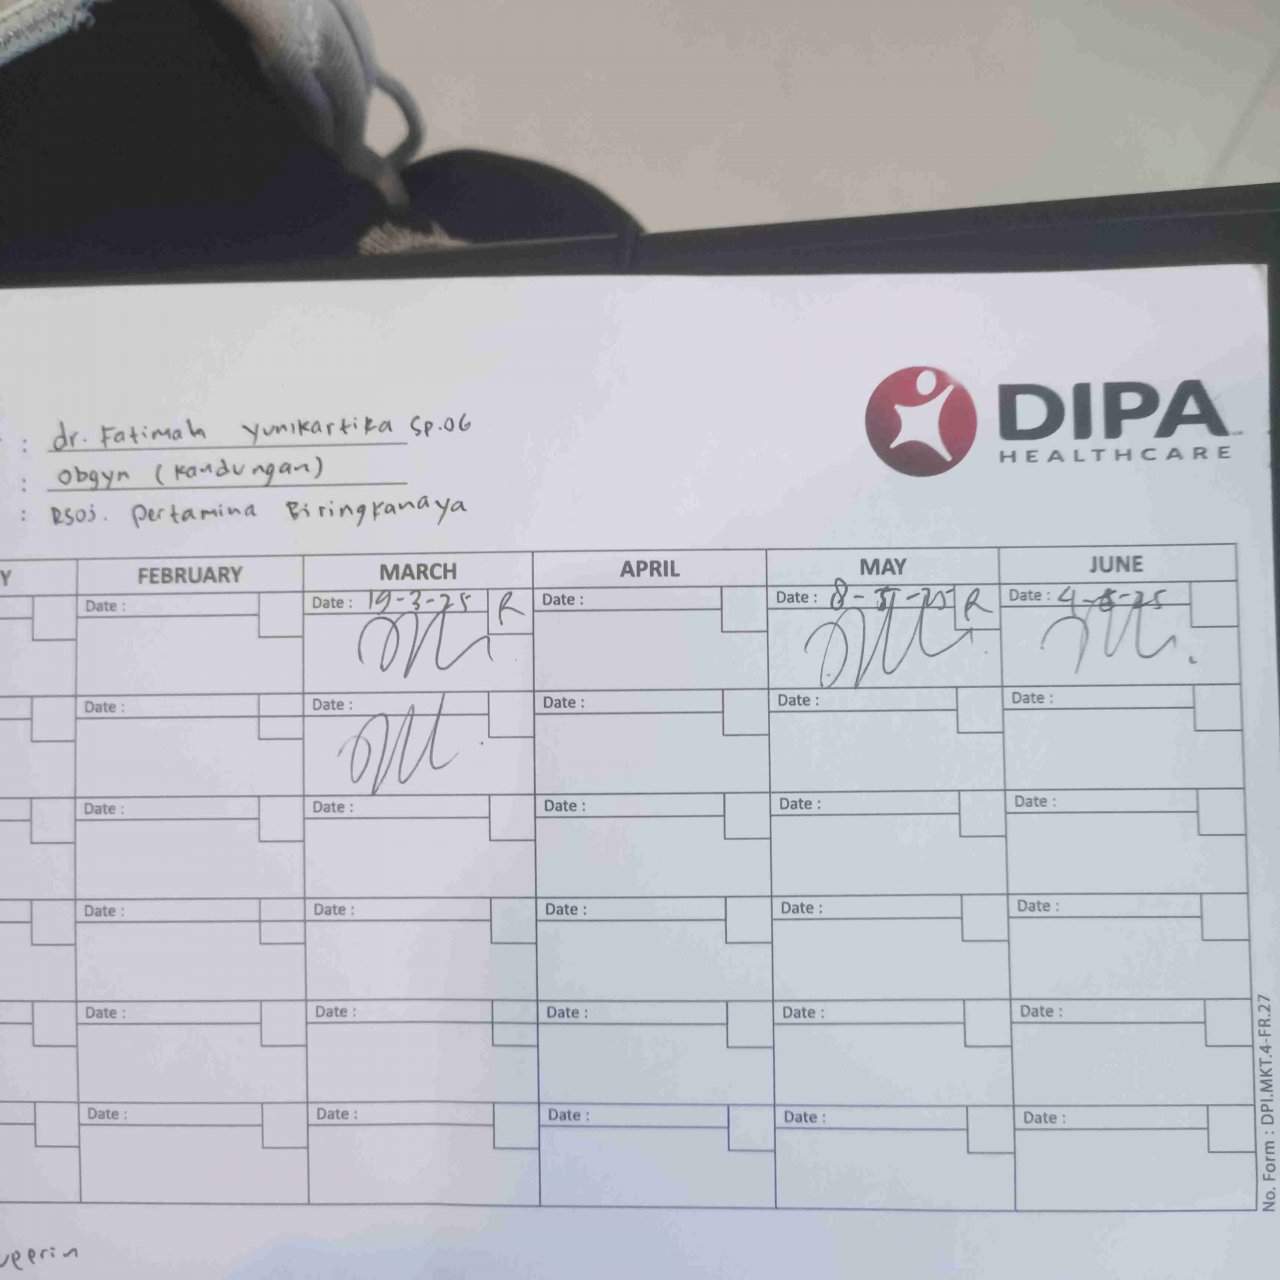 DIPA
HEALTHCARE
: dr. Fatimah Yunikartika Sp.OG
: Obgyn (Kandungan)
: RSOJ. Pertamina Biringkanaya
Y FEBRUARY MARCH APRIL MAY JUNE
Date : Date : 19-3-25 R Date : Date : 8-5-25 R Date : 4-6-25
Date : Date : Date : Date : Date :
Date : Date : Date : Date : Date :
Date : Date : Date : Date : Date :
Date : Date : Date : Date : Date :
Date : Date : Date : Date : Date :
No. Form : DPI.MKT.4-FR.27